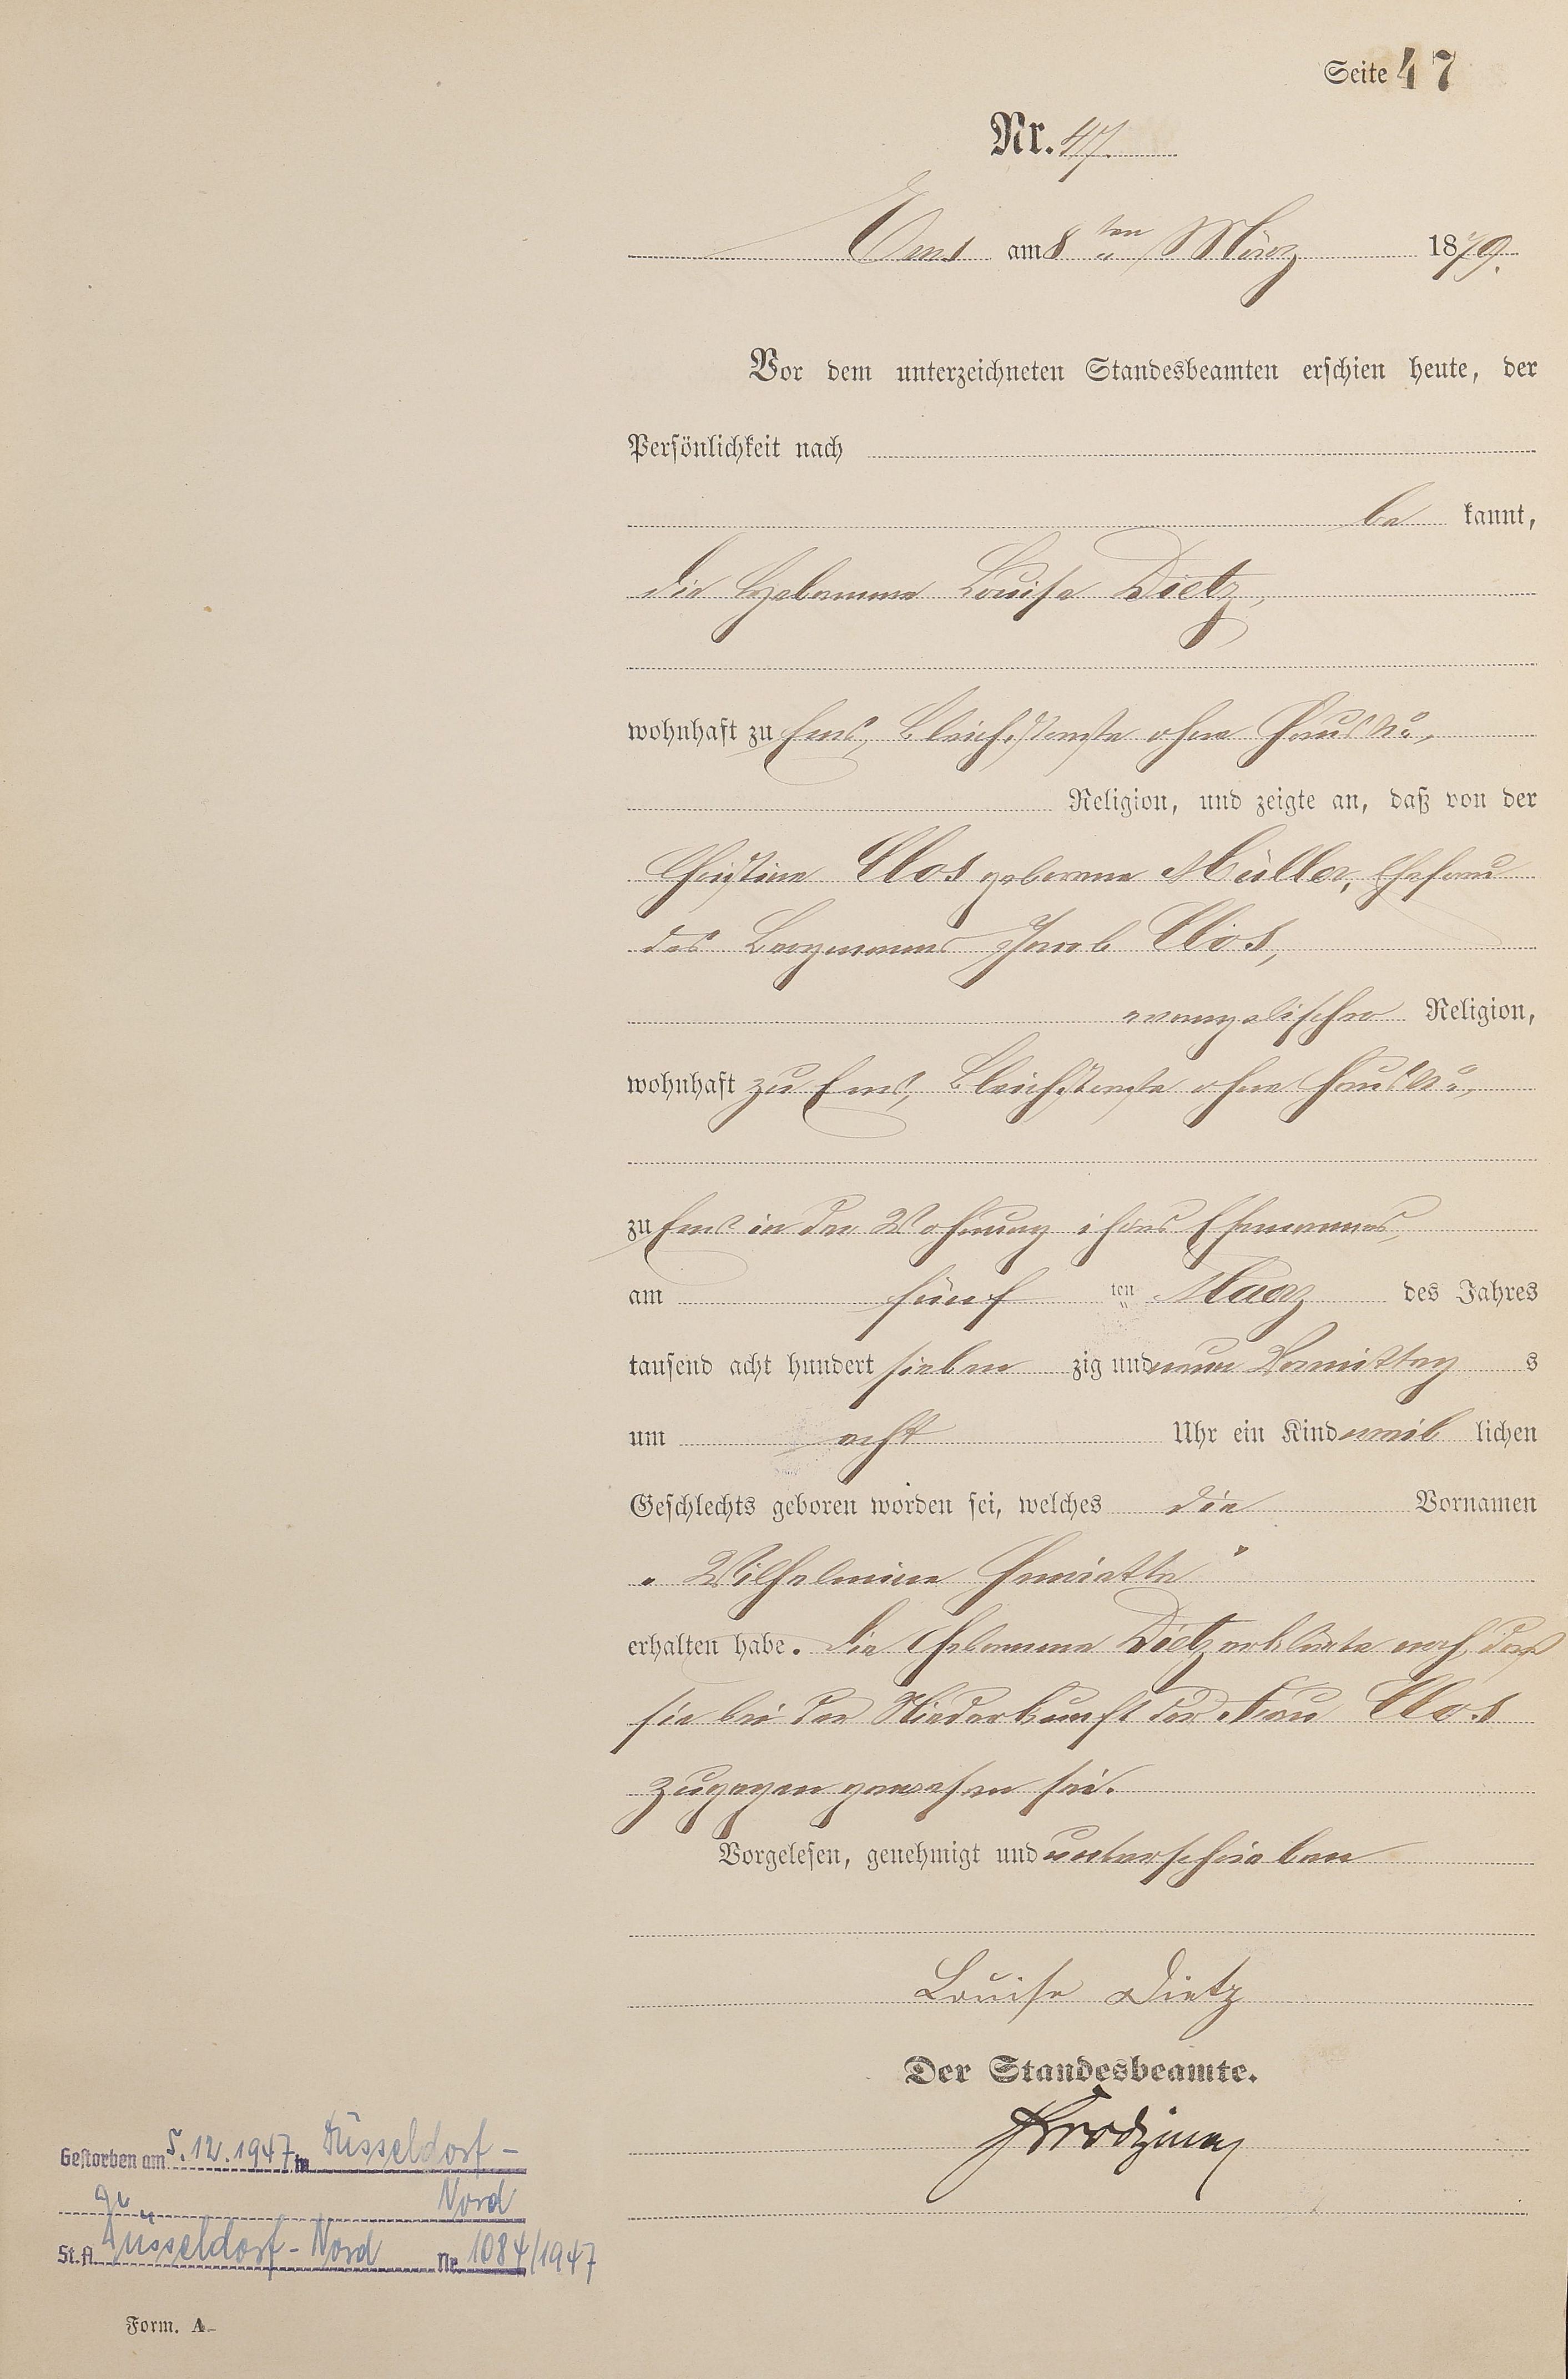 Seite 47
Nr. 47.
Ems am 8ten März 1879.
Vor dem unterzeichneten Standesbeamten erschien heute, der
Persönlichkeit nach
be kannt,
die Hebamme Louise Dietz,
wohnhaft zu Ems, Bleichstraße ohne Haus No,
Religion, und zeigte an, daß von der
Christine Clos geborene Müller, Ehefrau
des Bergmanns Jacob Clos,
evangelischer Religion,
wohnhaft zu Ems, Bleichstraße ohne Haus No,
zu Ems in der Wohnung ihres Ehemannes,
am fünf ten März des Jahres
tausend acht hundert sieben zig und neun Vormittag s
um acht Uhr ein Kind weib lichen
Geschlechts geboren worden sei, welches die Vornamen
„Wilhelmine Henriette"
erhalten habe. Die Hebamme Dietz erklärte noch, daß
sie bei der Niederkunft der Frau Clos
zugegen gewesen sei.
Vorgelesen, genehmigt und unterschrieben
Louise Dietz
Der Standesbeamte.
Gestorben am 5.12.1947 in Düsseldorf-
Nord
St.A. Düsseldorf-Nord Nr. 1084/1947
Form. A.